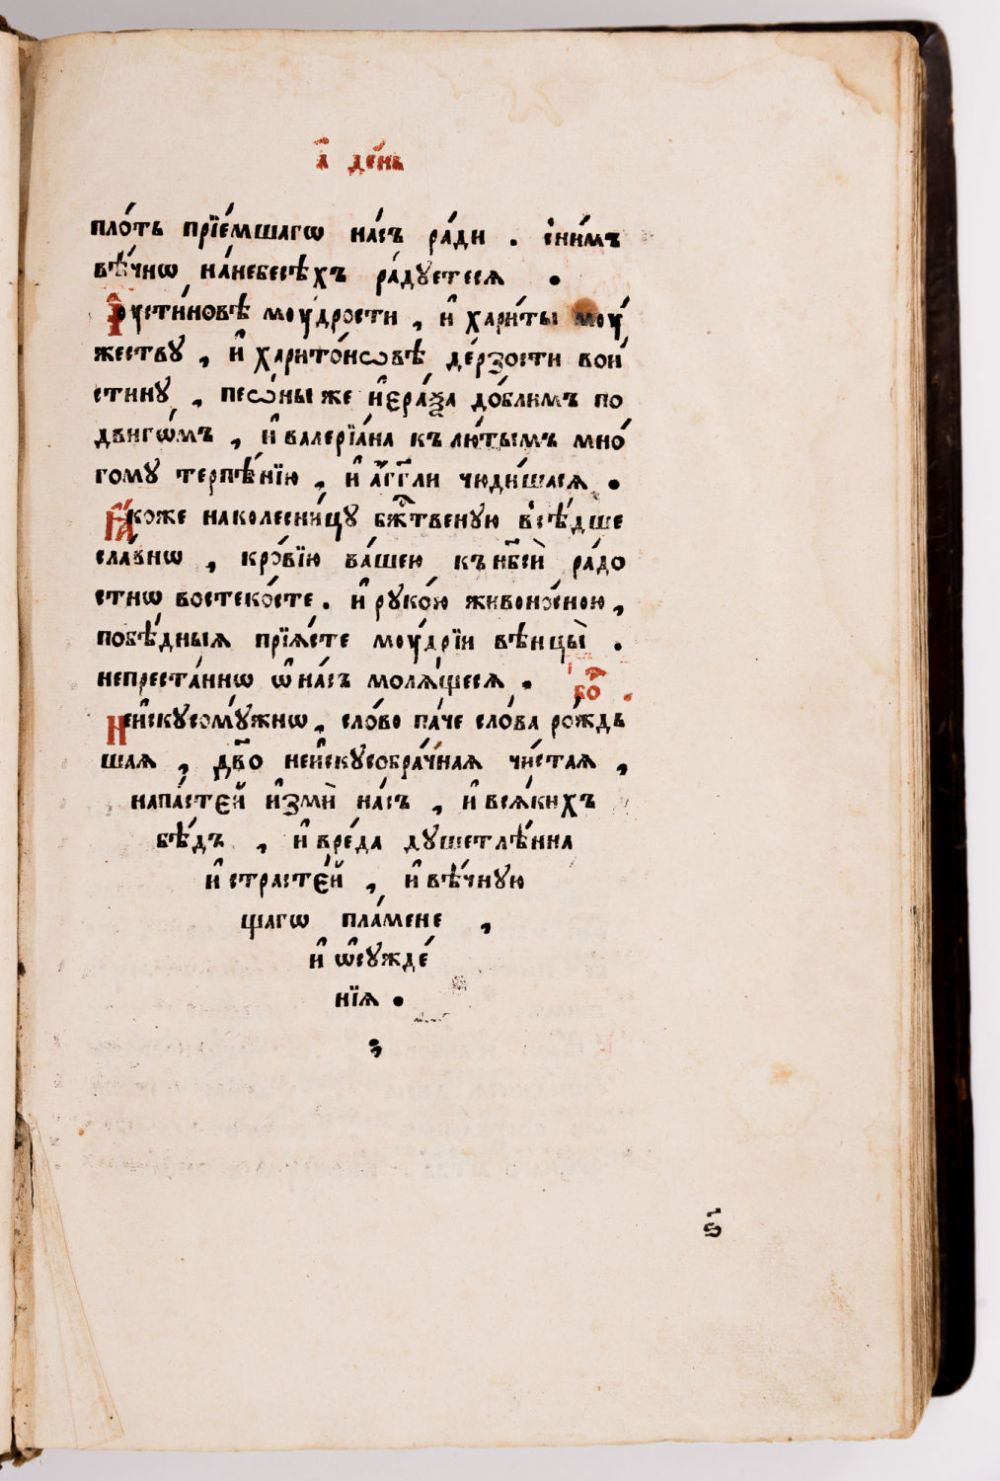 а҃ де́нь
пло́ть прїе́мшагѡ на́съ ра́ди . сни́мъ
вѣ́чнѡ на́небесѣхъ ра́дꙋетеся .
Іоусти́новѣ моу́дрости , и҆ хари́ты моу́
жествꙋ , и҆ харито́нсѡвѣ де́рзости вои́
стинꙋ , песѡ́ны же и҆єра́ѯа до́блимъ по
двигѡ́мъ , и҆ валерїа́на къ лю́тымъ мно́
гомꙋ терпѣ́нїю , и҆ а҆́гг҃ли чюди́шася .
Ꙗ҆́коже на колесни́цꙋ бж҃твенꙋю всѣ́дше
сла́внѡ , кро́вїю ва́шею къ нб҃сѝ ра́до
стнѡ востеко́сте . и҆ рꙋко́ю живоно́сною ,
побѣ́дныѧ прїѧ́сте моу́дрїи вѣнцы̀ .
непреста́ннѡ ѡ҆ на́съ молѧ́щесѧ .
бо҃
Неи҆скꙋсомꙋ́жнѡ , сло́во па́че сло́ва ро́ждь
шаѧ , дв҃о неи҆скꙋсобра́чнаѧ чи́стаѧ ,
напа́стєй и҆зми̇̀ на́съ , и҆ всѧ́кихъ
бѣ́дъ , и҆ вре́да дꙋшетлѣ́нна
и҆ страсте́й , и҆ вѣ́чнꙋю
щагѡ пла́мене ,
и҆ ѡ҆сꙋжде́
нїѧ .
ѕ҃